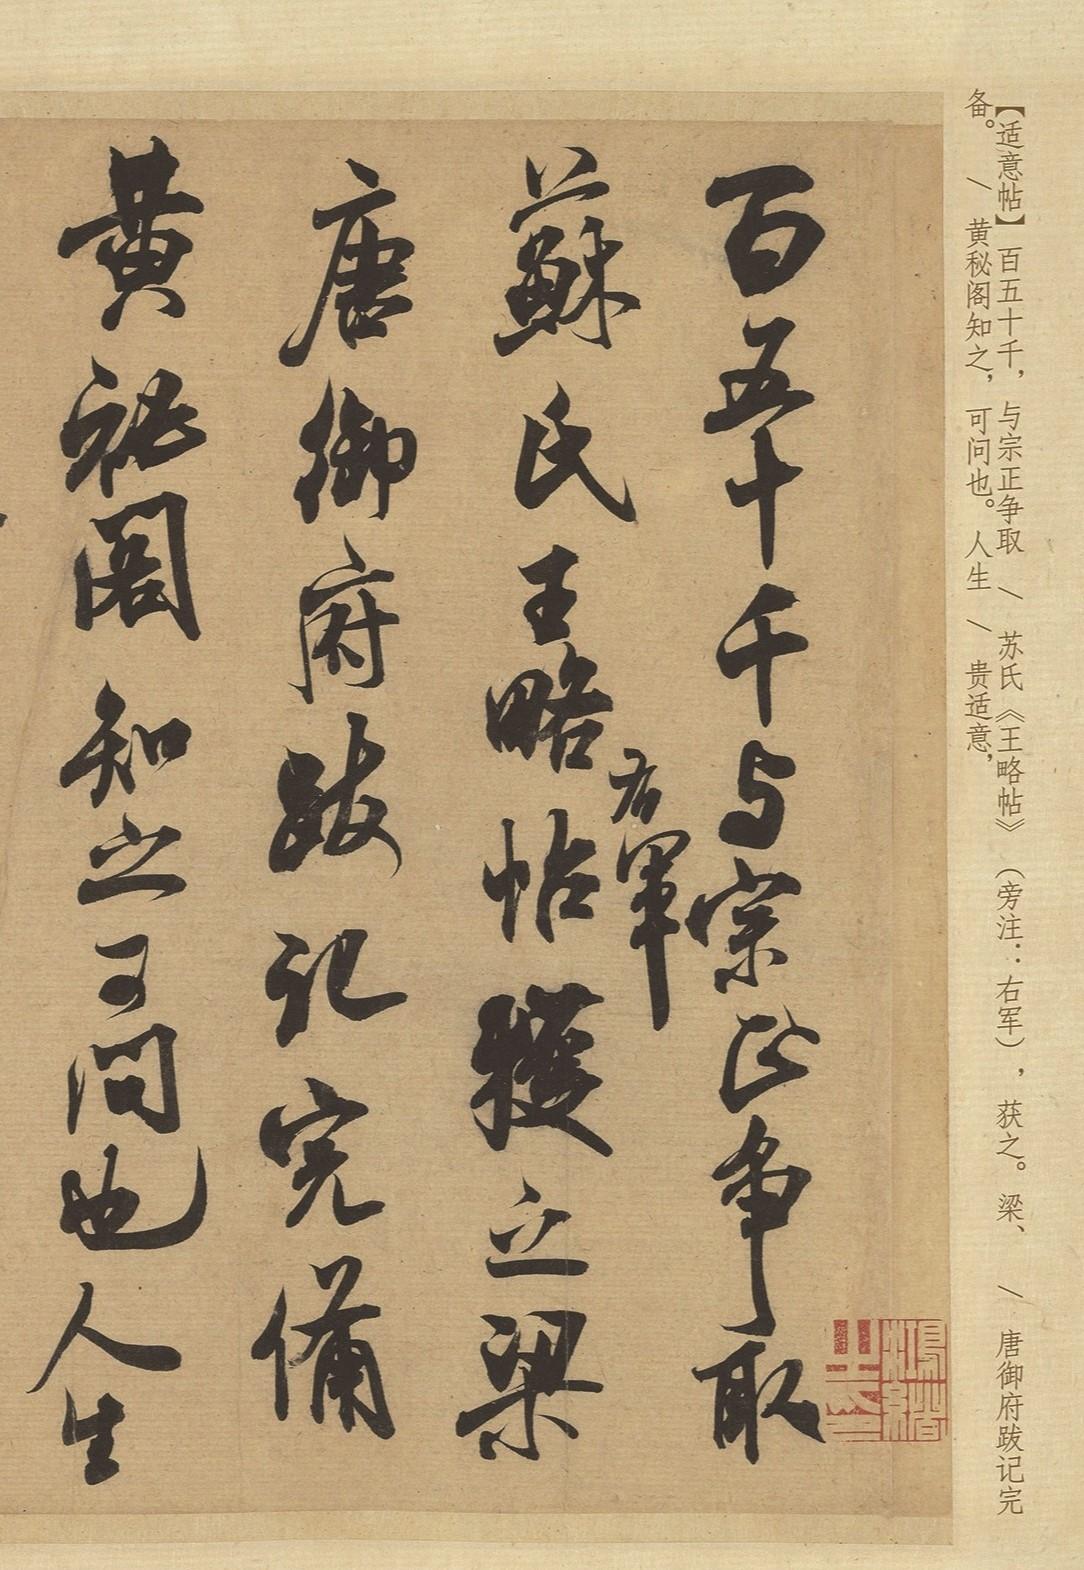 【适意帖】 百五十千， 与宗正争取 \ 苏氏《王略帖》 （旁注：右军），获之。梁、 \ 唐御府跋记完
备。 \ 黄秘阁知之，可问也。人生 \ 贵适意，
百五十千与宗正争取
右军
蘇氏王略帖獲之梁
唐御府跋記完備
黄祕閣知之可問也人生